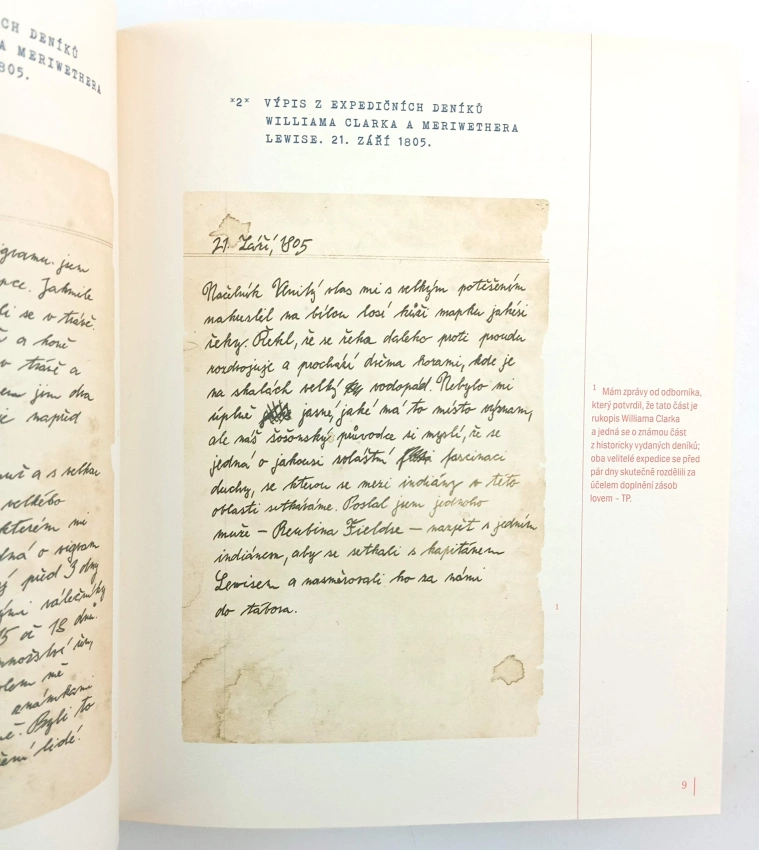 CH DENÍKŮ
A MERIWETHERA
805.
jsem
Jakmile
li se v trávě.
a koně
v trávě a
jsem jim dva
napřed
a s velkou
velkého
kterém mi
vigvam
před 3 dny
válečníky
15 až 18 dnů.
množství
kolem mě
známkami
Byli to
lidé!
*2* VÝPIS Z EXPEDIČNÍCH DENÍKŮ
WILLIAMA CLARKA A MERIWETHERA
LEWISE. 21. ZÁŘÍ 1805.
21. Září, 1805
Náčelník Vlnitý vlas mi s velkým potěšením
nakreslil na bílou losí kůži mapku jakési
řeky. Řekl, že se řeka daleko proti proudu
rozdvojuje a prochází dvěma horami, kde je
na skalách velký vodopád. Nebylo mi
úplně jasné, jaké má to místo význam,
ale náš šošonský průvodce si myslí, že se
jedná o jakousi zvláštní fascinaci
duchy, se kterou se mezi indiány v této
oblasti setkáváme. Poslal jsem jednoho
muže – Reubina Fieldse – nazpět s jedním
indiánem, aby se setkali s kapitánem
Lewisem a nasměrovali ho za námi
do tábora.
1
1 Mám zprávy od odborníka,
který potvrdil, že tato část je
rukopis Williama Clarka
a jedná se o známou část
z historicky vydaných deníků;
oba velitelé expedice se před
pár dny skutečně rozdělili za
účelem doplnění zásob
lovem – TP.
9